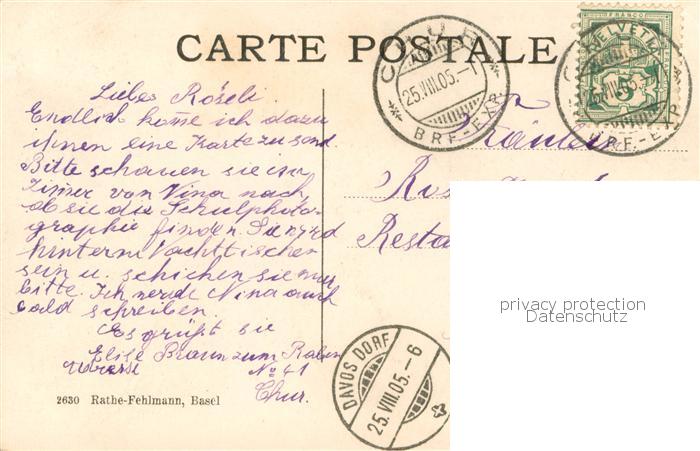 CARTE POSTALE
Liebes Röseli
Endlich komme ich dazu
ihnen eine Karte zu send.
Bitte schauen sie im
Zimer von Nina nach,
ob sie die Schulphoto-
graphie finden. Sie wird
hinterm Nachttischen
sein u. schicken sie mir
bitte. Ich werde Nina auch
bald schreiben.
Es grüßt sie
Elise Braun zum Raben
Adresse No 41
Chur.
2630 Rathe-Fehlmann, Basel
CHUR
25.VIII.05.-
BRF.-EXP.
FRANCO
HELVETIA
5
VIII.05
BRF.-EXP.
Fräulein
Restau
DAVOS DORF
25.VIII.05.-6
privacy protection
Datenschutz